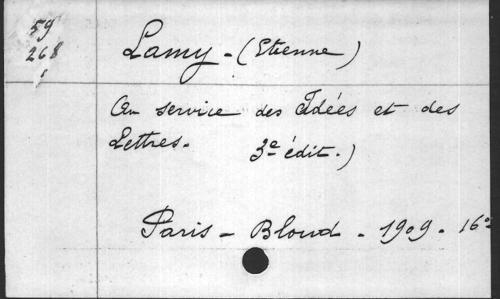 59
268
Lamy - (Etienne)
Au service des Idées et des
Lettres. 3e édit.)
Paris - Bloud - 1909 - 16°